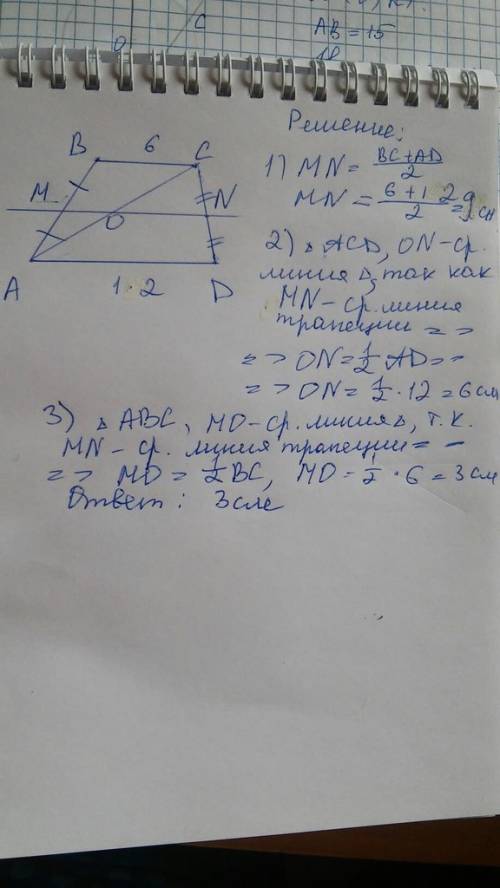 C
AB = 15
О
Решение:
B 6 C
M N
О
A 12 D
1) MN = BC+AD / 2
MN = 6+12 / 2 = 9 см
2) △ ACD, ON-ср.
линия △, так как
MN - ср. линия
трапеции =>
=> ON = 1/2 AD =
=> ON = 1/2 · 12 = 6 см
3) △ ABC, MO-ср. линия △, т.к.
MN - ср. линия трапеции =
=> MO = 1/2 BC, MO = 1/2 · 6 = 3 см
Ответ: 3 см